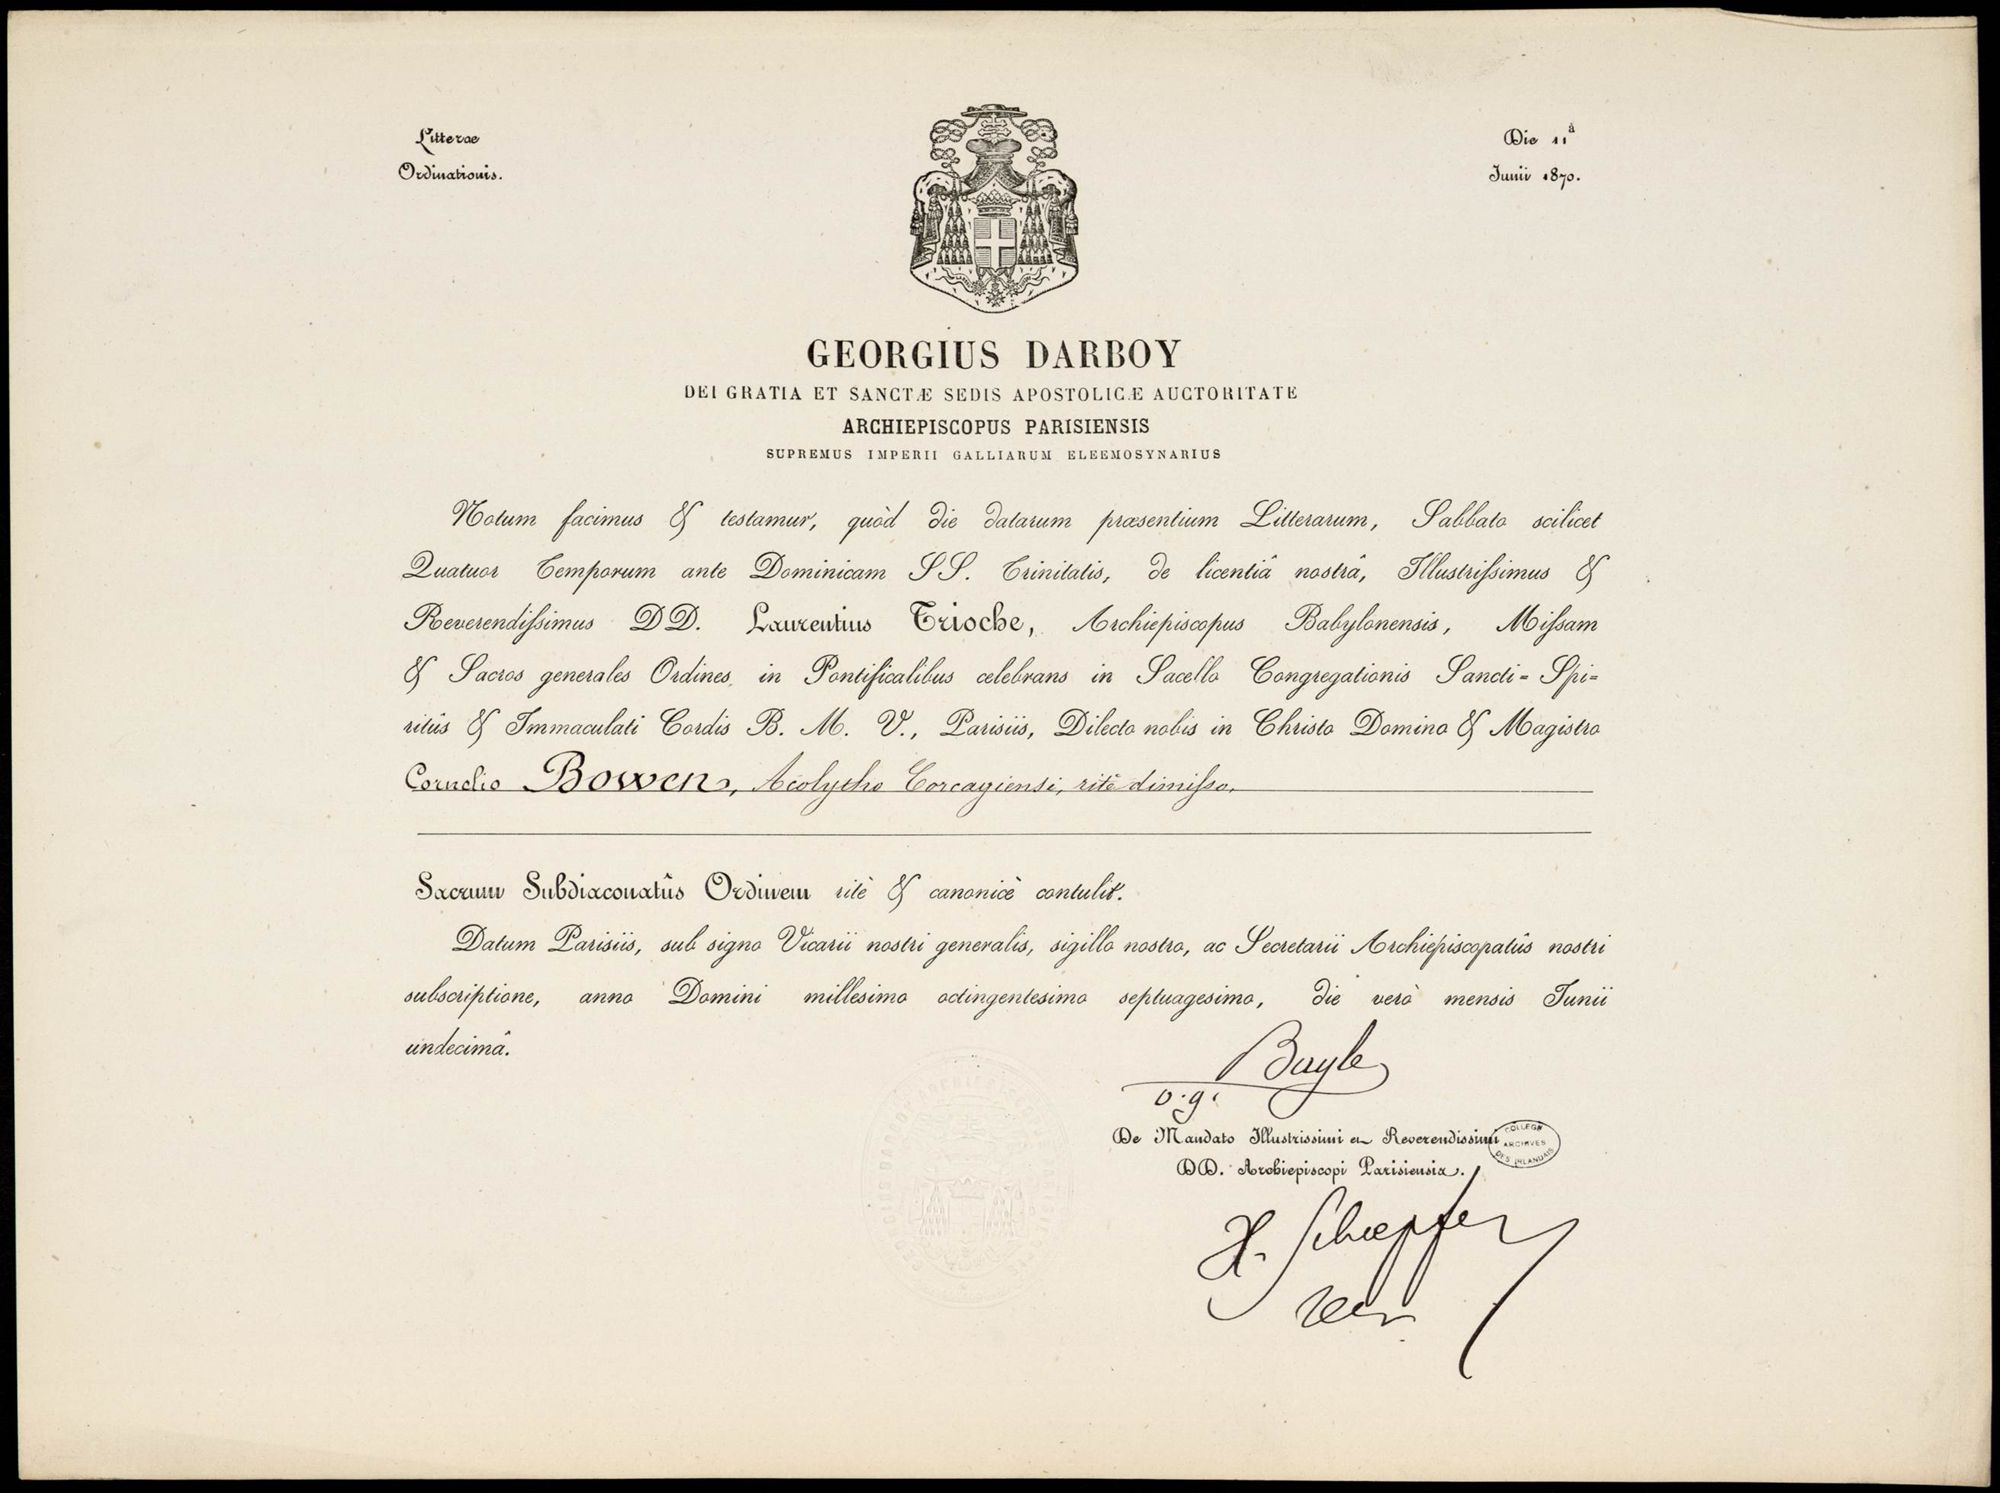 Litterae
Ordinationis.
Die 11ª
Junii 1870.
GEORGIUS DARBOY
DEI GRATIA ET SANCTÆ SEDIS APOSTOLICÆ AUCTORITATE
ARCHIEPISCOPUS PARISIENSIS
SUPREMUS IMPERII GALLIARUM ELEEMOSYNARIUS
Notum facimus & testamur, quòd die datarum præsentium Litterarum, Sabbato scilicet
Quatuor Temporum ante Dominicam SS. Trinitatis, de licentiâ nostrâ, Illustrissimus &
Reverendissimus DD. Laurentius Trioche, Archiepiscopus Babylonensis, Missam
& Sacros generales Ordines in Pontificalibus celebrans in Sacello Congregationis Sancti-Spi-
ritûs & Immaculati Cordis B. M. V., Parisiis, Dilecto nobis in Christo Domino & Magistro
Cornelio Bowen, Acolytho Corcagiensi, ritè dimisso,
Sacrum Subdiaconatûs Ordinem ritè & canonicè contulit.
Datum Parisiis, sub signo Vicarii nostri generalis, sigillo nostro, ac Secretarii Archiepiscopatûs nostri
subscriptione, anno Domini millesimo octingentesimo septuagesimo, die verò mensis Junii
undecimâ.
Bayle
v. g.
De Mandato Illustrissimi et Reverendissimi
DD. Archiepiscopi Parisiensis.
COLLEGE
ARCHIVES
DES IRLANDAIS
H. Schoepfer